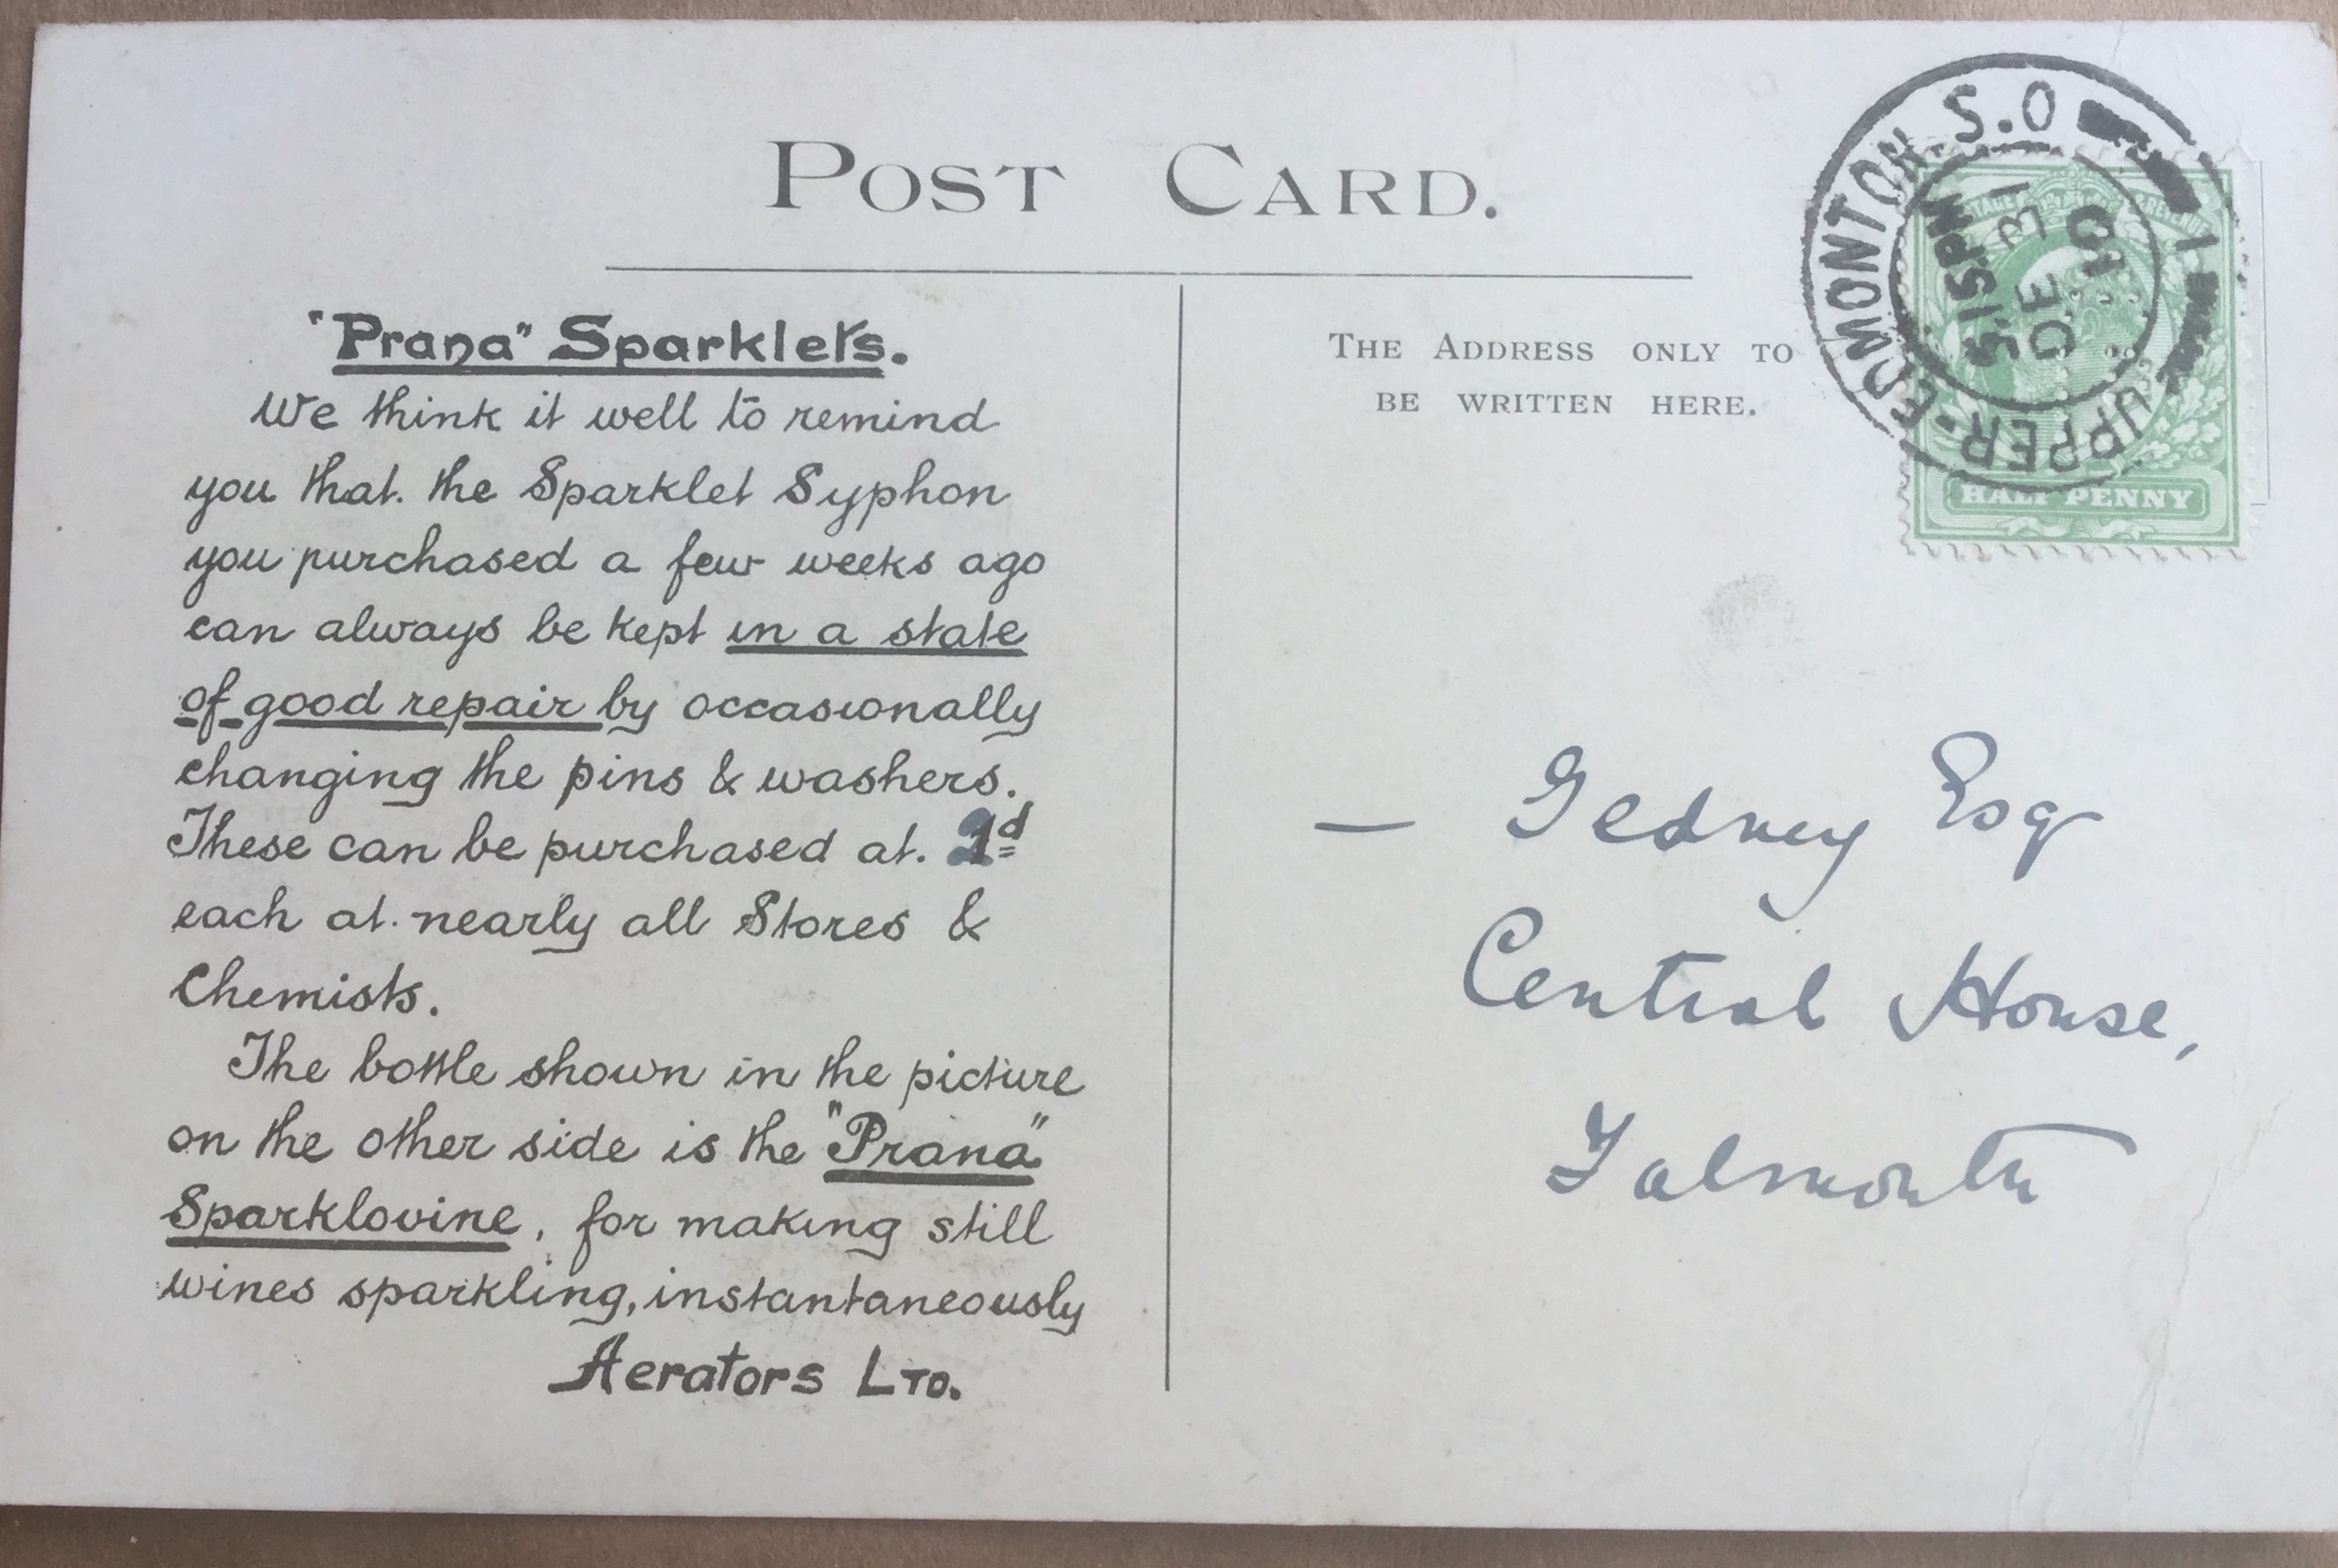 POST CARD.
"Prana" Sparklets.
We think it well to remind
you that the Sparklet Syphon
you purchased a few weeks ago
can always be kept in a state
of good repair by occasionally
changing the pins & washers.
These can be purchased at
each at nearly all Stores &
Chemists.
The bottle shown in the picture
on the other side is the "Prana"
Sparklovine, for making still
wines sparkling, instantaneously
Aerators LTD.
THE ADDRESS ONLY TO
BE WRITTEN HERE.
UPPER-EDMONTON S.O
5.15PM
DE 31
10
HALF PENNY
— Gedney Esq
Central House,
Falmouth